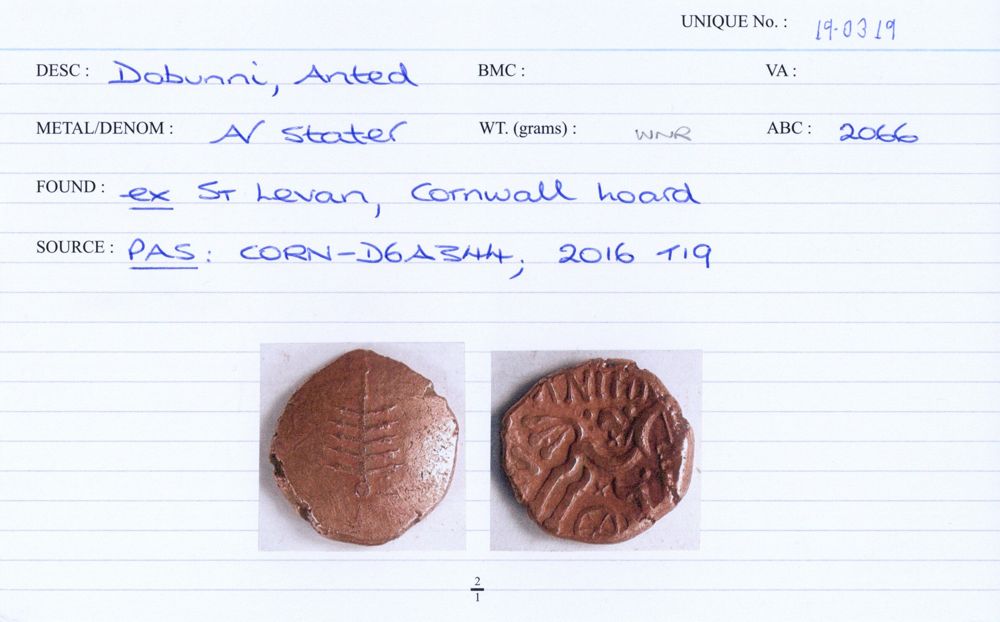 UNIQUE No. : 19.0319
DESC : Dobunni, Anted BMC : VA :
METAL/DENOM : A/ stater WT. (grams) : WNR ABC : 2066
FOUND : ex ST Levan, Cornwall hoard
SOURCE : PAS: CORN-D6A344; 2016 T19
2
1